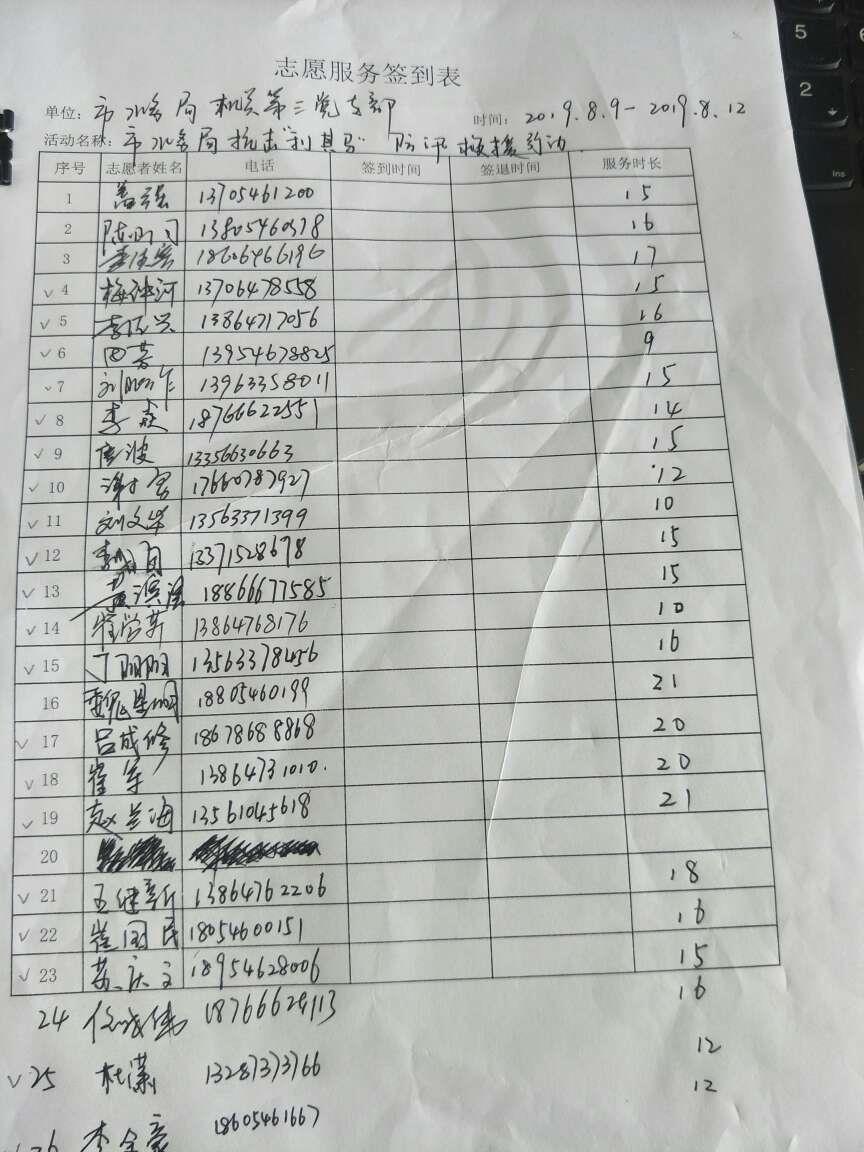 志愿服务签到表
单位: 市水务局机关第三党支部 时间: 2019.8.9-2019.8.12
活动名称: 市水务局抗击"利其马"防汛抢援行动.
序号 志愿者姓名 电话 签到时间 签退时间 服务时长
1 13705461200 15
2 陈 13805460378 16
3 18606466196 17
√ 4 梅 河 13706478558 15
√ 5 李 兴 13864717056 16
√ 6 田芳 13954678825 9
√ 7 刘 13963358011 15
√ 8 李 18766622551 14
√ 9 波 13356630663 15
√ 10 谢 17660787927 12
√ 11 刘文华 13563371399 10
√ 12 13371528678 15
√ 13 滨 18866677585 15
√ 14 崔学英 13864768176 10
√ 15 丁丽丽 13563378456 16
16 魏 18805460199 21
√ 17 吕成修 18678688868 20
√ 18 崔军 13864731010. 20
√ 19 赵兰海 13561045618 21
20
√ 21 王健新 13864762206 18
√ 22 崔国民 18054600151 16
√ 23 苏庆文 18954628006 15
24 任 伟 18766629113 16
√ 25 杜潇 13287373766 12
26 李金豪 18605461667 12